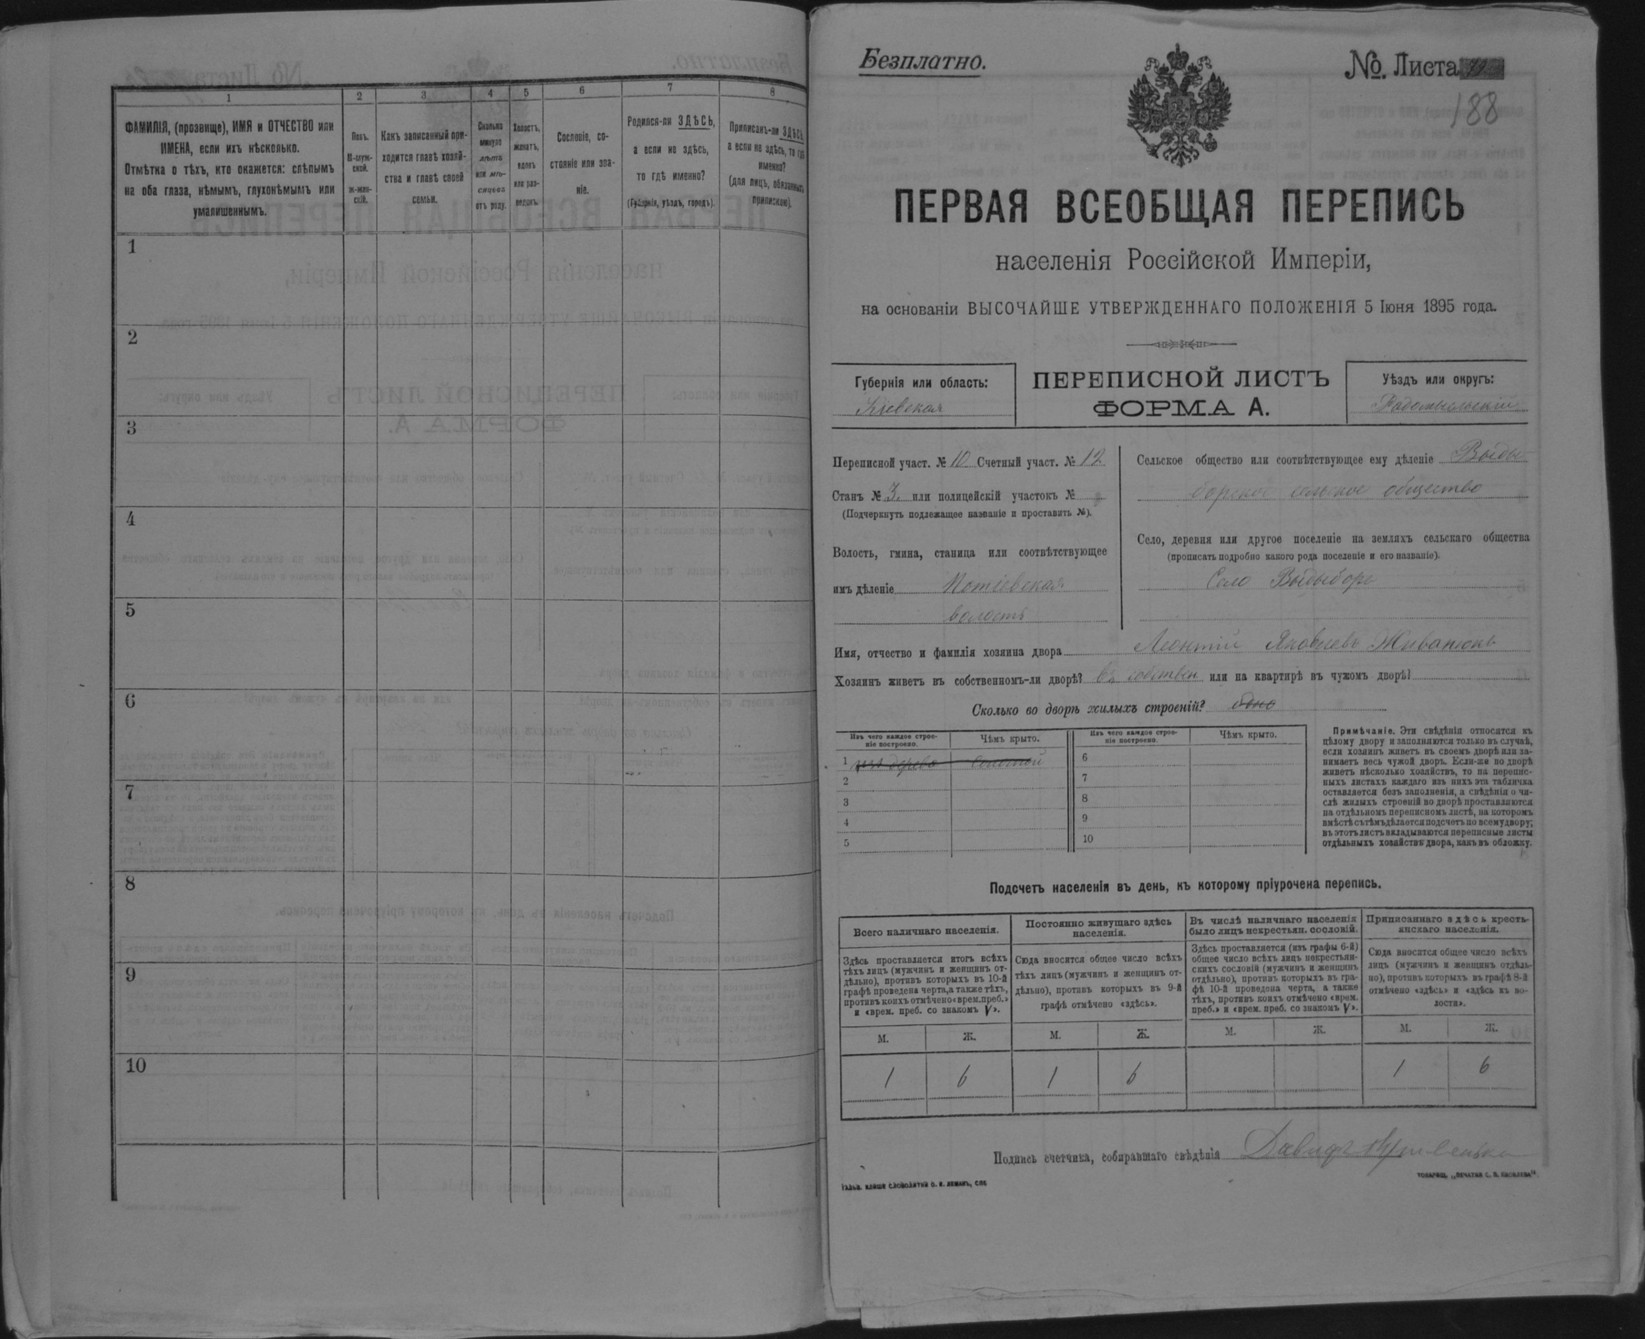 1
2
3
4
5
6
7
8
ФАМИЛІЯ, (прозвище), ИМЯ и ОТЧЕСТВО или
ИМЕНА, если ихъ нѣсколько.
Отмѣтка о тѣхъ, кто окажется: слѣпымъ
на оба глаза, нѣмымъ, глухонѣмымъ или
умалишеннымъ.
Полъ.
М-муж-
ской.
ж-жен-
скій.
Какъ записанный при-
ходится главѣ хозяй-
ства и главѣ своей
семьи.
Сколько
минуло
лѣтъ
или мѣ-
сяцевъ
отъ роду.
Холостъ,
женатъ,
вдовъ
или раз-
веденъ.
Сословіе, со-
стояніе или зва-
ніе.
Родился-ли ЗДѢСЬ,
а если не здѣсь,
то гдѣ именно?
(Губернія, уѣздъ, городъ).
Приписанъ-ли ЗДѢСЬ,
а если не здѣсь, то гдѣ
именно?
(для лицъ, обязанныхъ
припискою).
1
2
3
4
5
6
7
8
9
10
Безплатно.
№. Листа
188
ПЕРВАЯ ВСЕОБЩАЯ ПЕРЕПИСЬ
населенія Россійской Имперіи,
на основаніи ВЫСОЧАЙШЕ УТВЕРЖДЕННАГО ПОЛОЖЕНІЯ 5 Іюня 1895 года.
Губернія или область:
Кіевская
ПЕРЕПИСНОЙ ЛИСТЪ
ФОРМА А.
Уѣздъ или округъ:
Радомысльскій
Переписной участ. № 10 Счетный участ. № 12
Станъ № 3. или полицейскій участокъ №
(Подчеркнуть подлежащее названіе и проставить №).
Волость, гмина, станица или соотвѣтствующее
имъ дѣленіе Потіевская
волость
Сельское общество или соотвѣтствующее ему дѣленіе Выды-
борское сельское общество
Село, деревня или другое поселеніе на земляхъ сельскаго общества
(прописать подробно какого рода поселеніе и его названіе).
Село Выдыборъ
Имя, отчество и фамилія хозяина двора Леонтій Яковлевъ Живанюкъ
Хозяинъ живетъ въ собственномъ-ли дворѣ? Въ собствен или на квартирѣ въ чужомъ дворѣ?
Сколько во дворѣ жилыхъ строеній? одно
Изъ чего каждое строе-
ніе построено.
Чѣмъ крыто.
Изъ чего каждое строе-
ніе построено.
Чѣмъ крыто.
1 изъ дерева Соломой
2
3
4
5
6
7
8
9
10
Примѣчаніе. Эти свѣдѣнія относятся къ
цѣлому двору и заполняются только въ случаѣ,
если хозяинъ живетъ въ своемъ дворѣ или за-
нимаетъ весь чужой дворъ. Если-же во дворѣ
живетъ нѣсколько хозяйствъ, то на перепис-
ныхъ листахъ каждаго изъ нихъ эта табличка
оставляется безъ заполненія, а свѣдѣнія о чи-
слѣ жилыхъ строеній во дворѣ проставляются
на отдѣльномъ переписномъ листѣ, на которомъ
вмѣстѣ съ тѣмъ дѣлается подсчетъ по всему двору;
въ этотъ листъ вкладываются переписные листы
отдѣльныхъ хозяйствъ двора, какъ въ обложку.
Подсчетъ населенія въ день, къ которому пріурочена перепись.
Всего наличнаго населенія.
Здѣсь проставляется итогъ всѣхъ
тѣхъ лицъ (мужчинъ и женщинъ от-
дѣльно), противъ которыхъ въ 10-й
графѣ проведена черта, а также тѣхъ,
противъ коихъ отмѣчено «врем. преб.»
и «врем. преб. со знакомъ V».
Постоянно живущаго здѣсь
населенія.
Сюда вносится общее число всѣхъ
тѣхъ лицъ (мужчинъ и женщинъ от-
дѣльно), противъ которыхъ въ 9-й
графѣ отмѣчено «здѣсь».
Въ числѣ наличнаго населенія
было лицъ некрестьян. сословій.
Здѣсь проставляется (изъ графы 6-й)
общее число всѣхъ лицъ некрестьян-
скихъ сословій (мужчинъ и женщинъ
отдѣльно), противъ которыхъ въ гра-
фѣ 10-й проведена черта, а также
тѣхъ, противъ коихъ отмѣчено «врем.
преб.» и «врем. преб. со знакомъ V».
Приписаннаго здѣсь кресть-
янскаго населенія.
Сюда вносится общее число всѣхъ
лицъ (мужчинъ и женщинъ отдѣль-
но), противъ которыхъ въ графѣ 8-й
отмѣчено «здѣсь» и «здѣсь къ во-
лости».
М. Ж. М. Ж. М. Ж. М. Ж.
1 6 1 6 1 6
Подпись счетчика, собиравшаго свѣдѣнія Давидъ